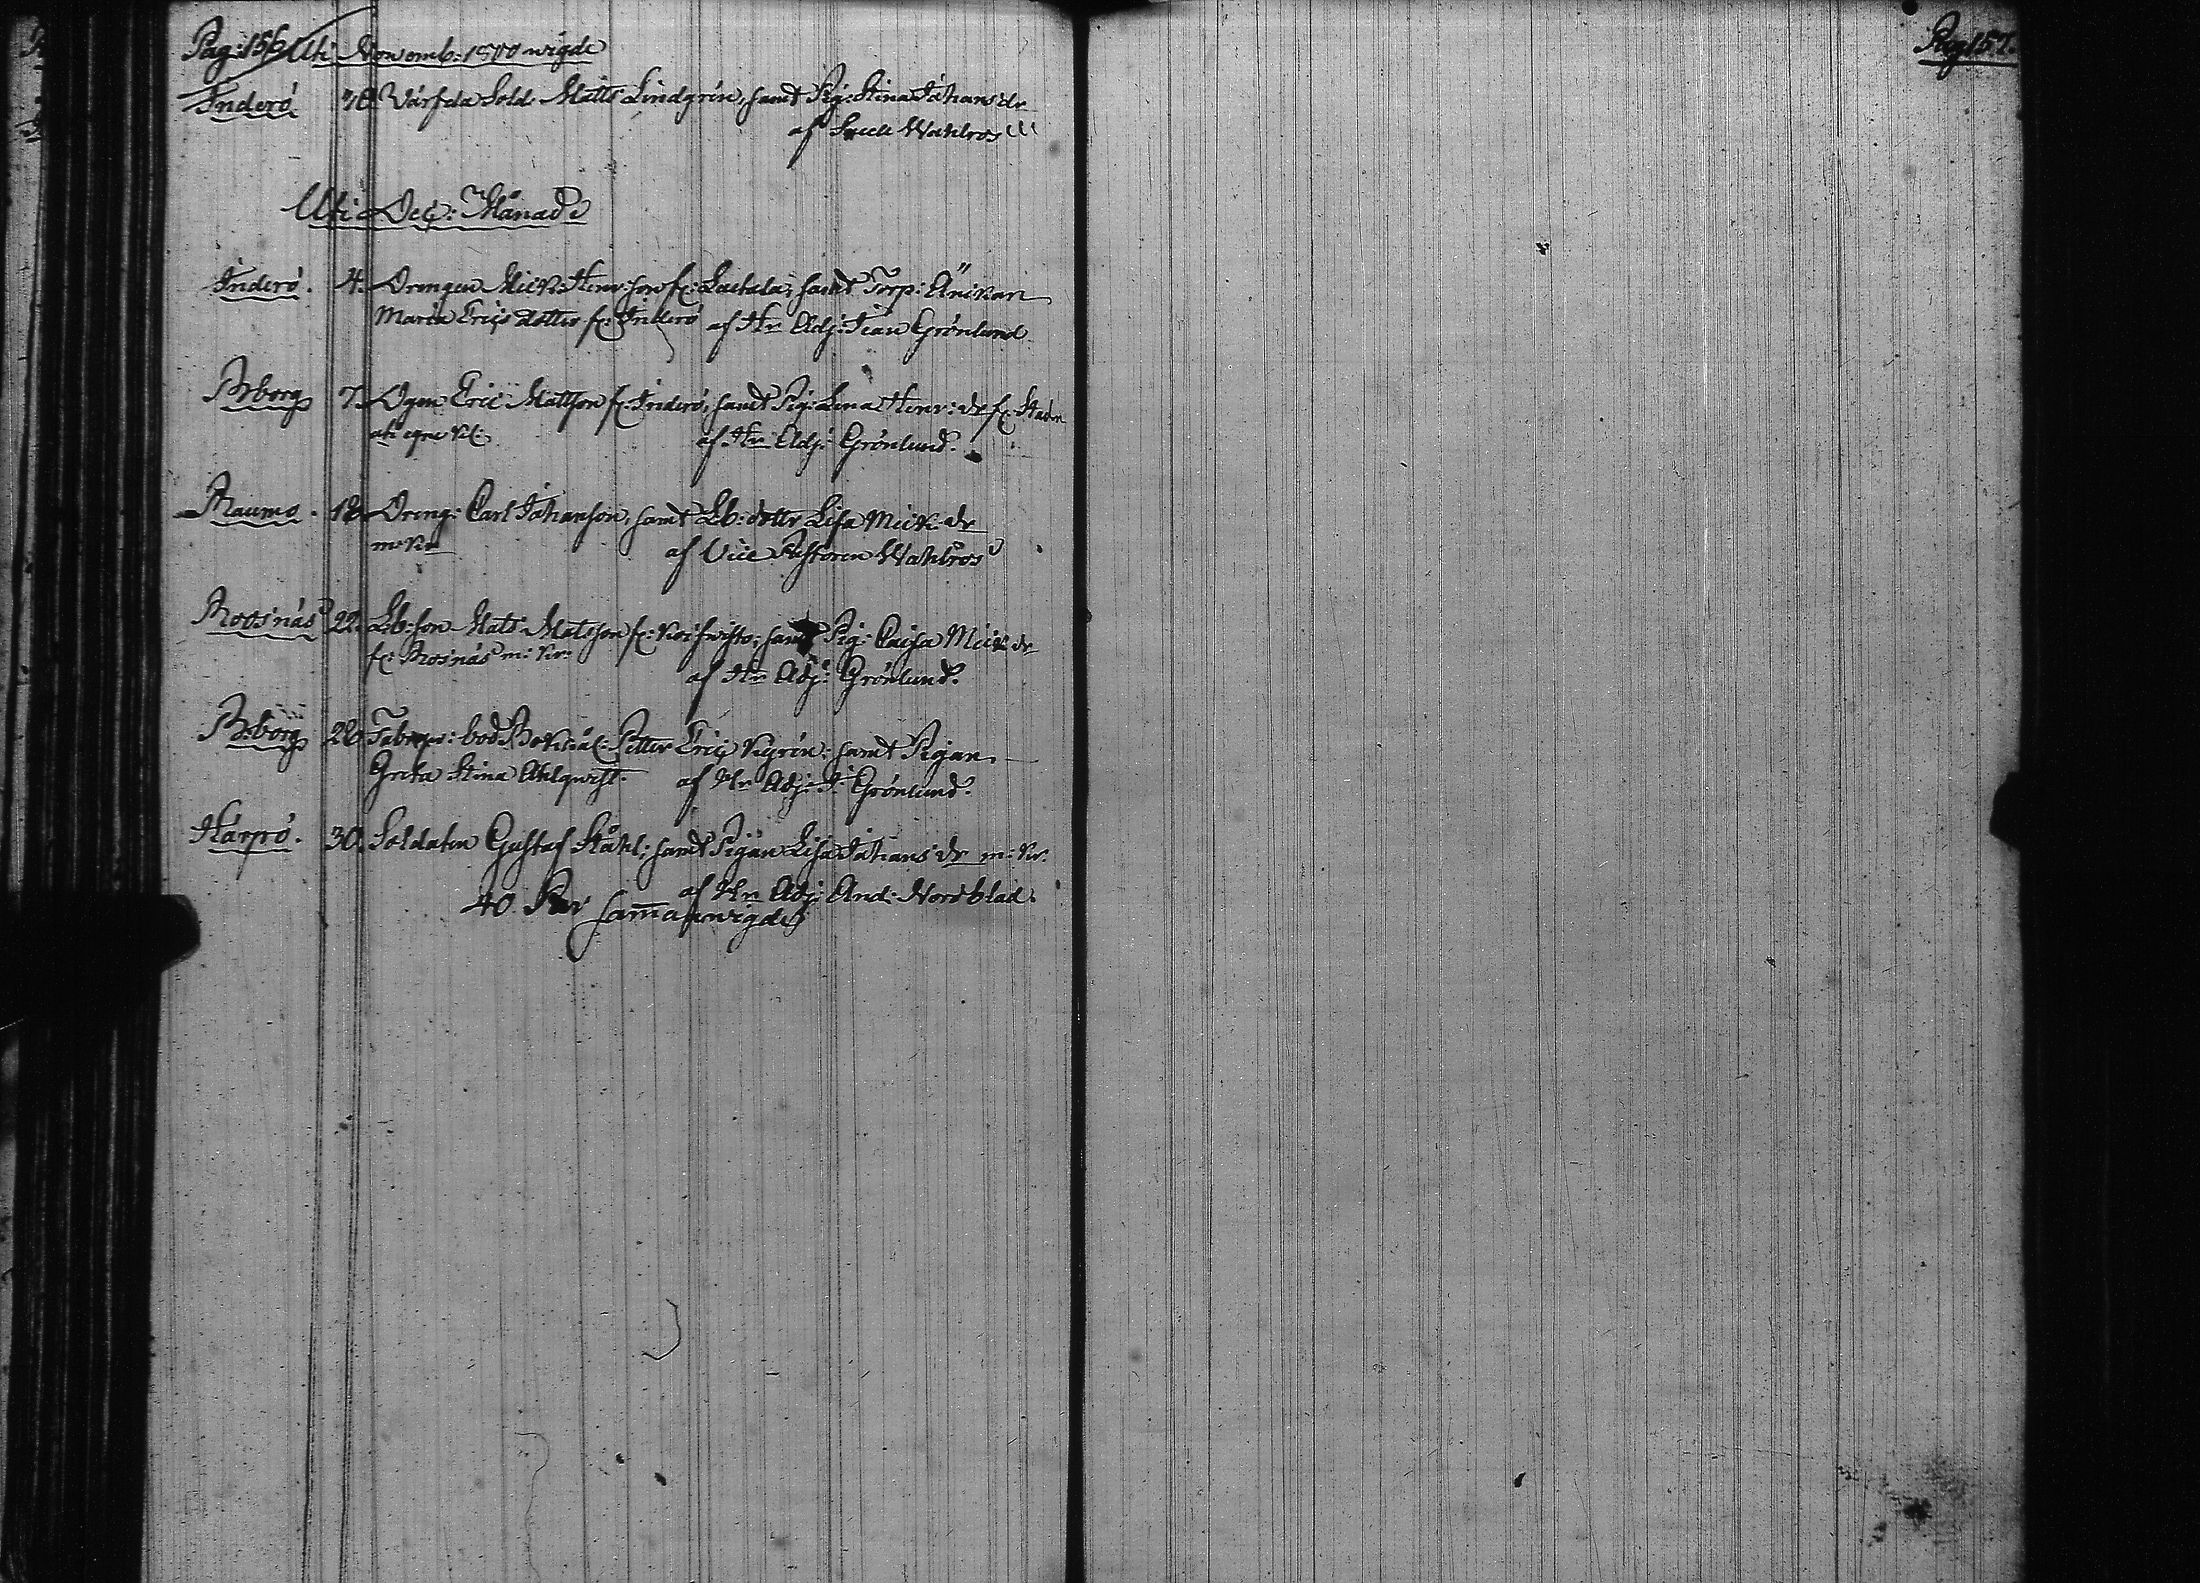 Pag: 156 Uti Novemb: wigde
Inderö 30 Värfda Sold. Matts Lindgrén, samt Pig: Stina Johans dr
af Wahlros
Uti Dec: Månad
Inderö. 4. Drengen Mick: Henr: son fr: samt Torp: Änkan
Maria Erics dotter fr: Inderö af Hr Adj: Joan Grönlund
Arborg 7. Dgen Eric Mattson fr: Inderö, samt Pig: Lena Henr: dr fr: Staden
af Hr Adj: Grönlund.
Raumo. 18. Dreng: Carl Johanson, samt Lb: dottr Lisa Mick dr
af Vice Pastoren Wahlros
Roosnäs 22. Lb: son Mats Matsson fr: samt Pig: Caisa Mick dr
fr: Rosnäs af Hr Adj: Grönlund.
28. Petter Eric samt Pigan
Greta Stina Ahlqwist. af Hr Adj: J: Grönlund.
Härpö. 30. Soldaten Gustaf Ståhl; samt Pigan Lisa Johans dr m: kr:
af Hr Adj: And: Nordblad.
40 Par sam̅anwigde
Pag 157.